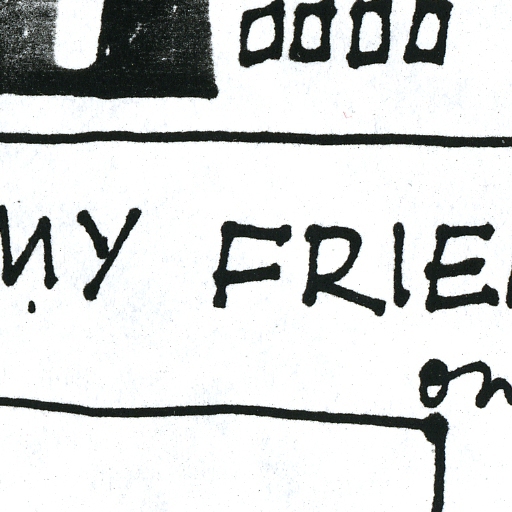 MY FRIE
on